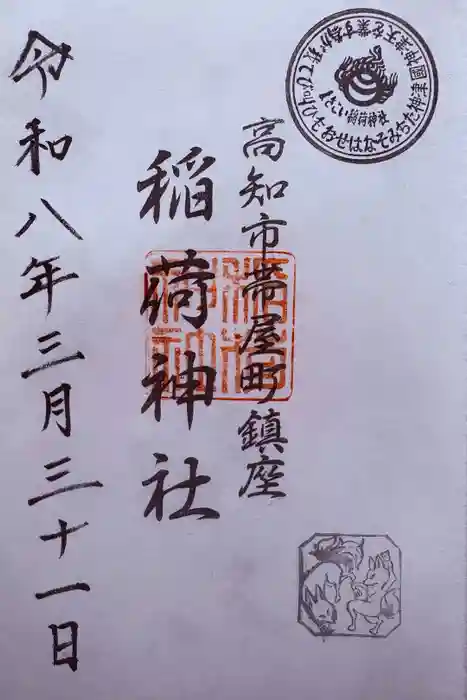 よさこい稲荷神社
高知市帯屋町鎮座
稲荷神社
令和八年三月三十一日